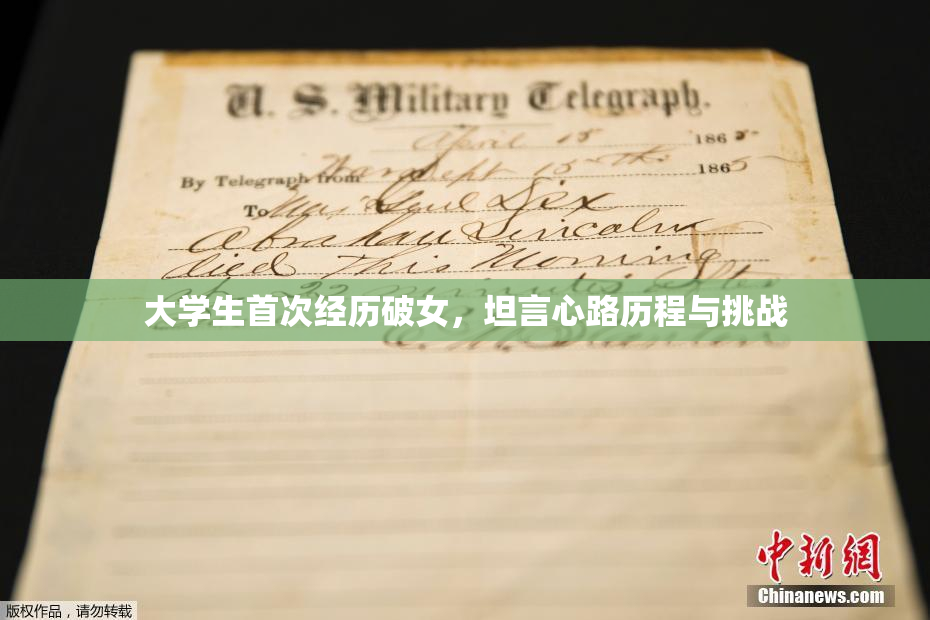 U. S. Military Telegraph.
April 15 1865
By Telegraph from War Dept 15th 1865
To Maj Genl Dix
Abraham Lincoln
died This Morning
at 22 minutes after
大学生首次经历破女，坦言心路历程与挑战
E. M. Stanton
中新网
Chinanews.com
版权作品，请勿转载